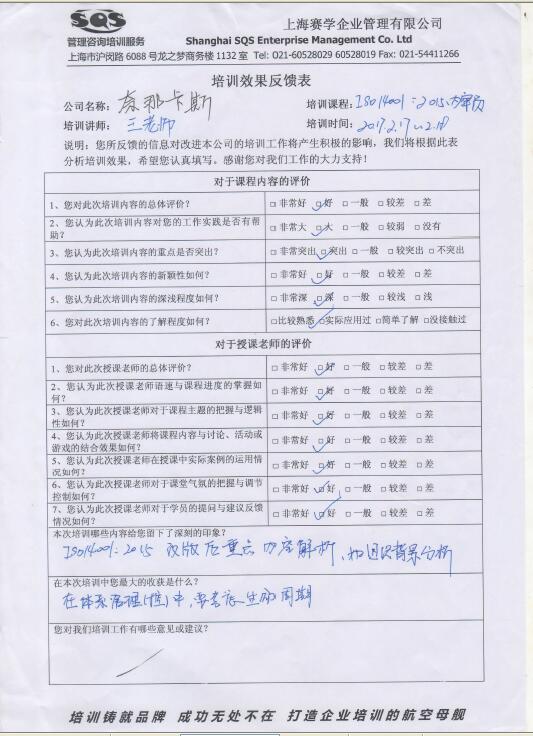 SQS
管理咨询培训服务
上海赛学企业管理有限公司
Shanghai SQS Enterprise Management Co. Ltd
上海市沪闵路 6088 号龙之梦商务楼 1132 室 Tel: 021-60528029 60528019 Fax: 021-54411266
培训效果反馈表
公司名称：奈那卡斯 培训课程：ISO14001：2015内审员
培训讲师：王老师 培训时间：2017.2.17~2.18
说明：您所反馈的信息对改进本公司的培训工作将产生积极的影响，我们将根据此表
分析培训效果，希望您认真填写。感谢您对我们工作的大力支持！
对于课程内容的评价
1、您对此次培训内容的总体评价？ □非常好 □好 □一般 □较差 □差
2、您认为此次培训内容对您的工作实践是否有帮
助？ □非常大 □大 □一般 □较弱 □没有
3、您认为此次培训内容的重点是否突出？ □非常突出 □突出 □一般 □较突出 □不突出
4、您认为此次培训内容的新颖性如何？ □非常好 □好 □一般 □较差 □差
5、您认为此次培训内容的深浅程度如何？ □非常深 □深 □一般 □较浅 □浅
6、您对此次培训内容的了解程度如何？ □比较熟悉 □实际应用过 □简单了解 □没接触过
对于授课老师的评价
1、您对此次授课老师的总体评价？ □非常好 □好 □一般 □较差 □差
2、您认为此次授课老师语速与课程进度的掌握如
何？ □非常好 □好 □一般 □较差 □差
3、您认为此次授课老师对于课程主题的把握与逻辑
性如何？ □非常好 □好 □一般 □较差 □差
4、您认为此次授课老师将课程内容与讨论、活动或
游戏的结合效果如何？ □非常好 □好 □一般 □较差 □差
5、您认为此次授课老师在授课中实际案例的运用情
况如何？ □非常好 □好 □一般 □较差 □差
6、您认为此次授课老师对于课堂气氛的把握与调节
控制如何？ □非常好 □好 □一般 □较差 □差
7、您认为此次授课老师对于学员的提问与建议反馈
情况如何？ □非常好 □好 □一般 □较差 □差
本次培训哪些内容给您留下了深刻的印象？
ISO14001：2015 改版后重点内容解析，和 背景分析
在本次培训中您最大的收获是什么？
在体系管理 中，要考虑生命周期
您对我们培训工作有哪些意见或建议？
培训铸就品牌 成功无处不在 打造企业培训的航空母舰